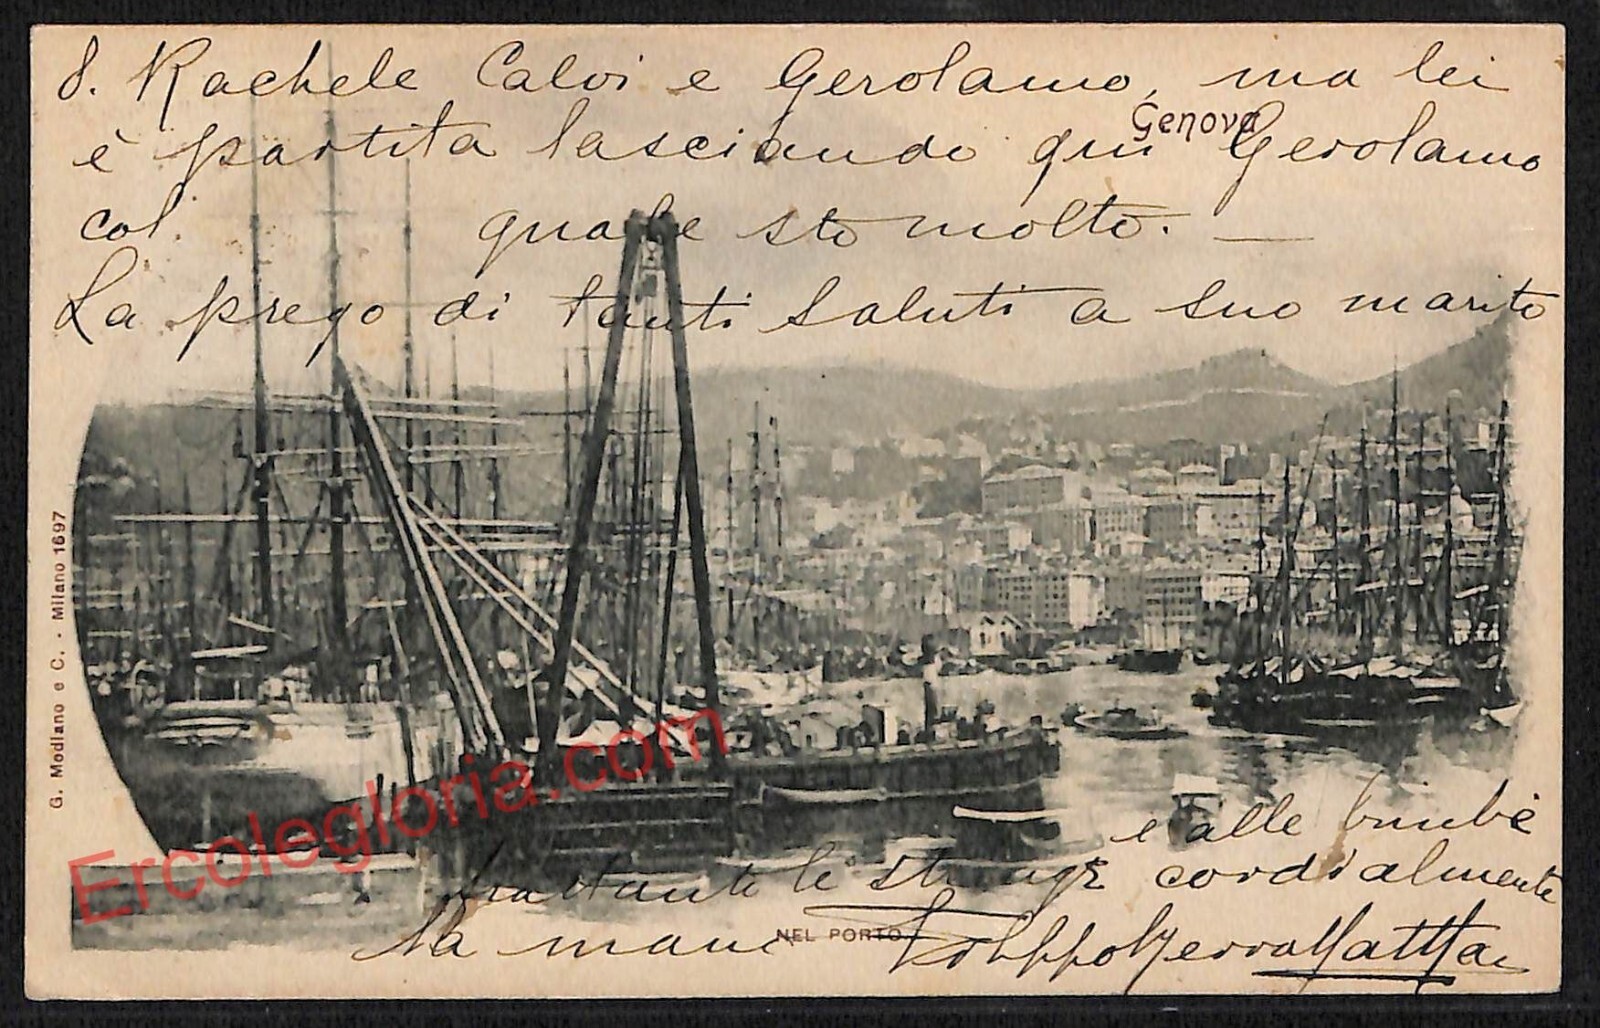 8. Rachele Calvi e Gerolamo, ma lei
Genova
è partita lasciando qui Gerolamo
col quale sto molto. —
La prego di tanti saluti a suo marito
e alle bimbe
frattanto le stringe cordialmente
la mano
NEL PORTO
G. Modiano e C. - Milano 1697
Ercolegloria.com